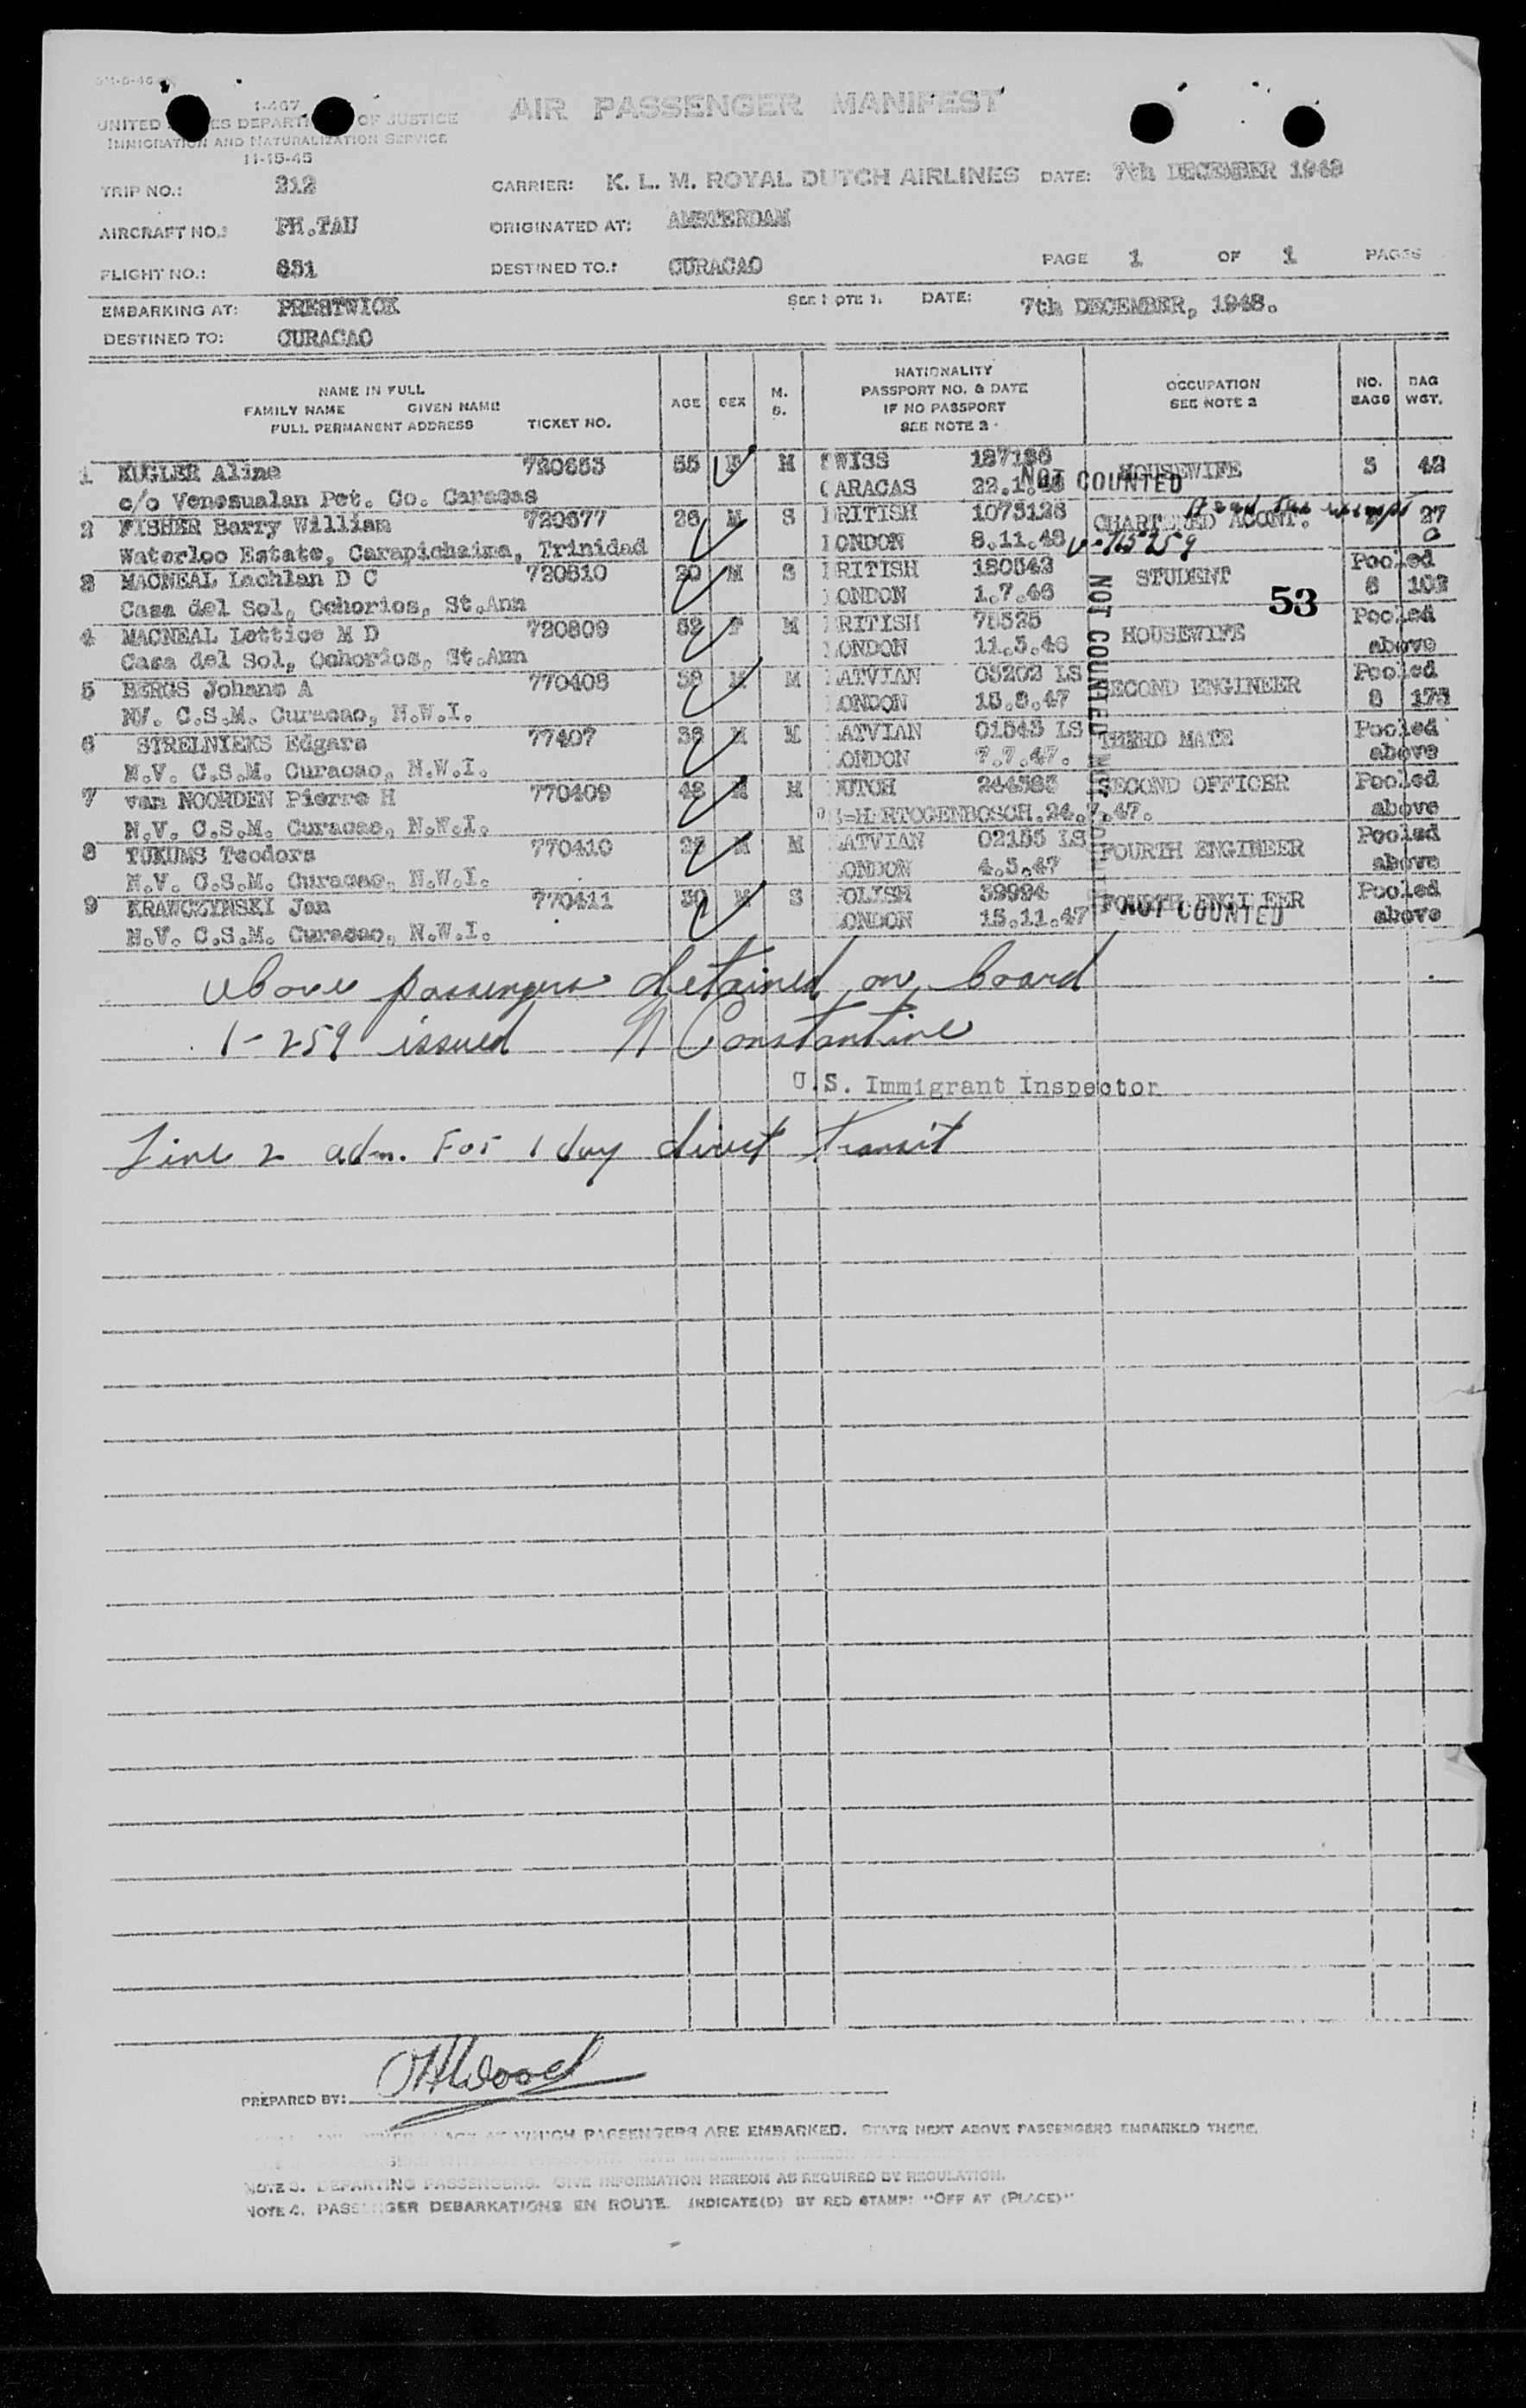 1-467
UNITED ES DEPART OF JUSTICE
IMMIGRATION AND NATURALIZATION SERVICE
11-15-45
AIR PASSENGER MANIFEST
TRIP NO.: 212 CARRIER: K. L. M. ROYAL DUTCH AIRLINES DATE: 7th DECEMBER 1948
AIRCRAFT NO.: PH.TAU ORIGINATED AT: AMSTERDAM
FLIGHT NO.: 651 DESTINED TO.: CURACAO PAGE 1 OF 1 PAGES
EMBARKING AT: PRESTWICK SEE NOTE 1. DATE: 7th DECEMBER, 1948.
DESTINED TO: CURACAO
NAME IN FULL
FAMILY NAME GIVEN NAME
FULL PERMANENT ADDRESS TICKET NO. AGE SEX M. S. NATIONALITY PASSPORT NO. & DATE IF NO PASSPORT SEE NOTE 2 OCCUPATION SEE NOTE 2 NO. BAGS BAG WGT.
1 KUGLER Aline 720653 55 F M SWISS 187186 HOUSEWIFE 3 42
c/o Venesualan Pet. Co. Caracas CARACAS 22.1.48 NOT COUNTED
2 FISHER Barry William 720677 26 M S BRITISH 1075128 CHARTERED ACONT. 27
Waterloo Estate, Carapichaima, Trinidad LONDON 8.11.48
3 MACNEAL Lachlan D C 720810 20 M S BRITISH 180543 STUDENT Pooled
Casa del Sol, Ochorios, St.Ann LONDON 1.7.46 53 8 102
4 MACNEAL Lettice M D 720809 52 F M BRITISH 75525 HOUSEWIFE Pooled
Casa del Sol, Ochorios, St.Ann LONDON 11.3.46 above
5 BERGS Johans A 770408 38 M M LATVIAN 03202 LS SECOND ENGINEER Pooled
NV. C.S.M. Curacao, N.W.I. LONDON 15.8.47 8 173
6 STRELNIEKS Edgars 77407 36 M M LATVIAN 01543 LS THIRD MATE Pooled
N.V. C.S.M. Curacao, N.W.I. LONDON 7.7.47. above
7 van NOORDEN Pierre H 770409 48 M M DUTCH 244583 SECOND OFFICER Pooled
N.V. C.S.M. Curacao, N.W.I. 's-HERTOGENBOSCH.24.7.47. above
8 TUKUMS Teodors 770410 28 M M LATVIAN 02155 LS FOURTH ENGINEER Pooled
N.V. C.S.M. Curacao, N.W.I. LONDON 4.3.47 above
9 KRAWCZYNSKI Jan 770411 30 M S POLISH 39994 FOURTH ENGI EER Pooled
N.V. C.S.M. Curacao, N.W.I. LONDON 15.11.47 NOT COUNTED above
NOT COUNTED
above passengers detained on board
1-259 issued N Constantine
U.S. Immigrant Inspector
Line 2 adm. For 1 day direct transit
PREPARED BY: Wood
WHICH PASSENGERS ARE EMBARKED. STATE NEXT ABOVE PASSENGERS EMBARKED THERE.
NOTE 3. DEPARTING PASSENGERS. GIVE INFORMATION HEREON AS REQUIRED BY REGULATION.
NOTE 4. PASSENGER DEBARKATIONS EN ROUTE. INDICATE(D) BY RED STAMP: "OFF AT (PLACE)"